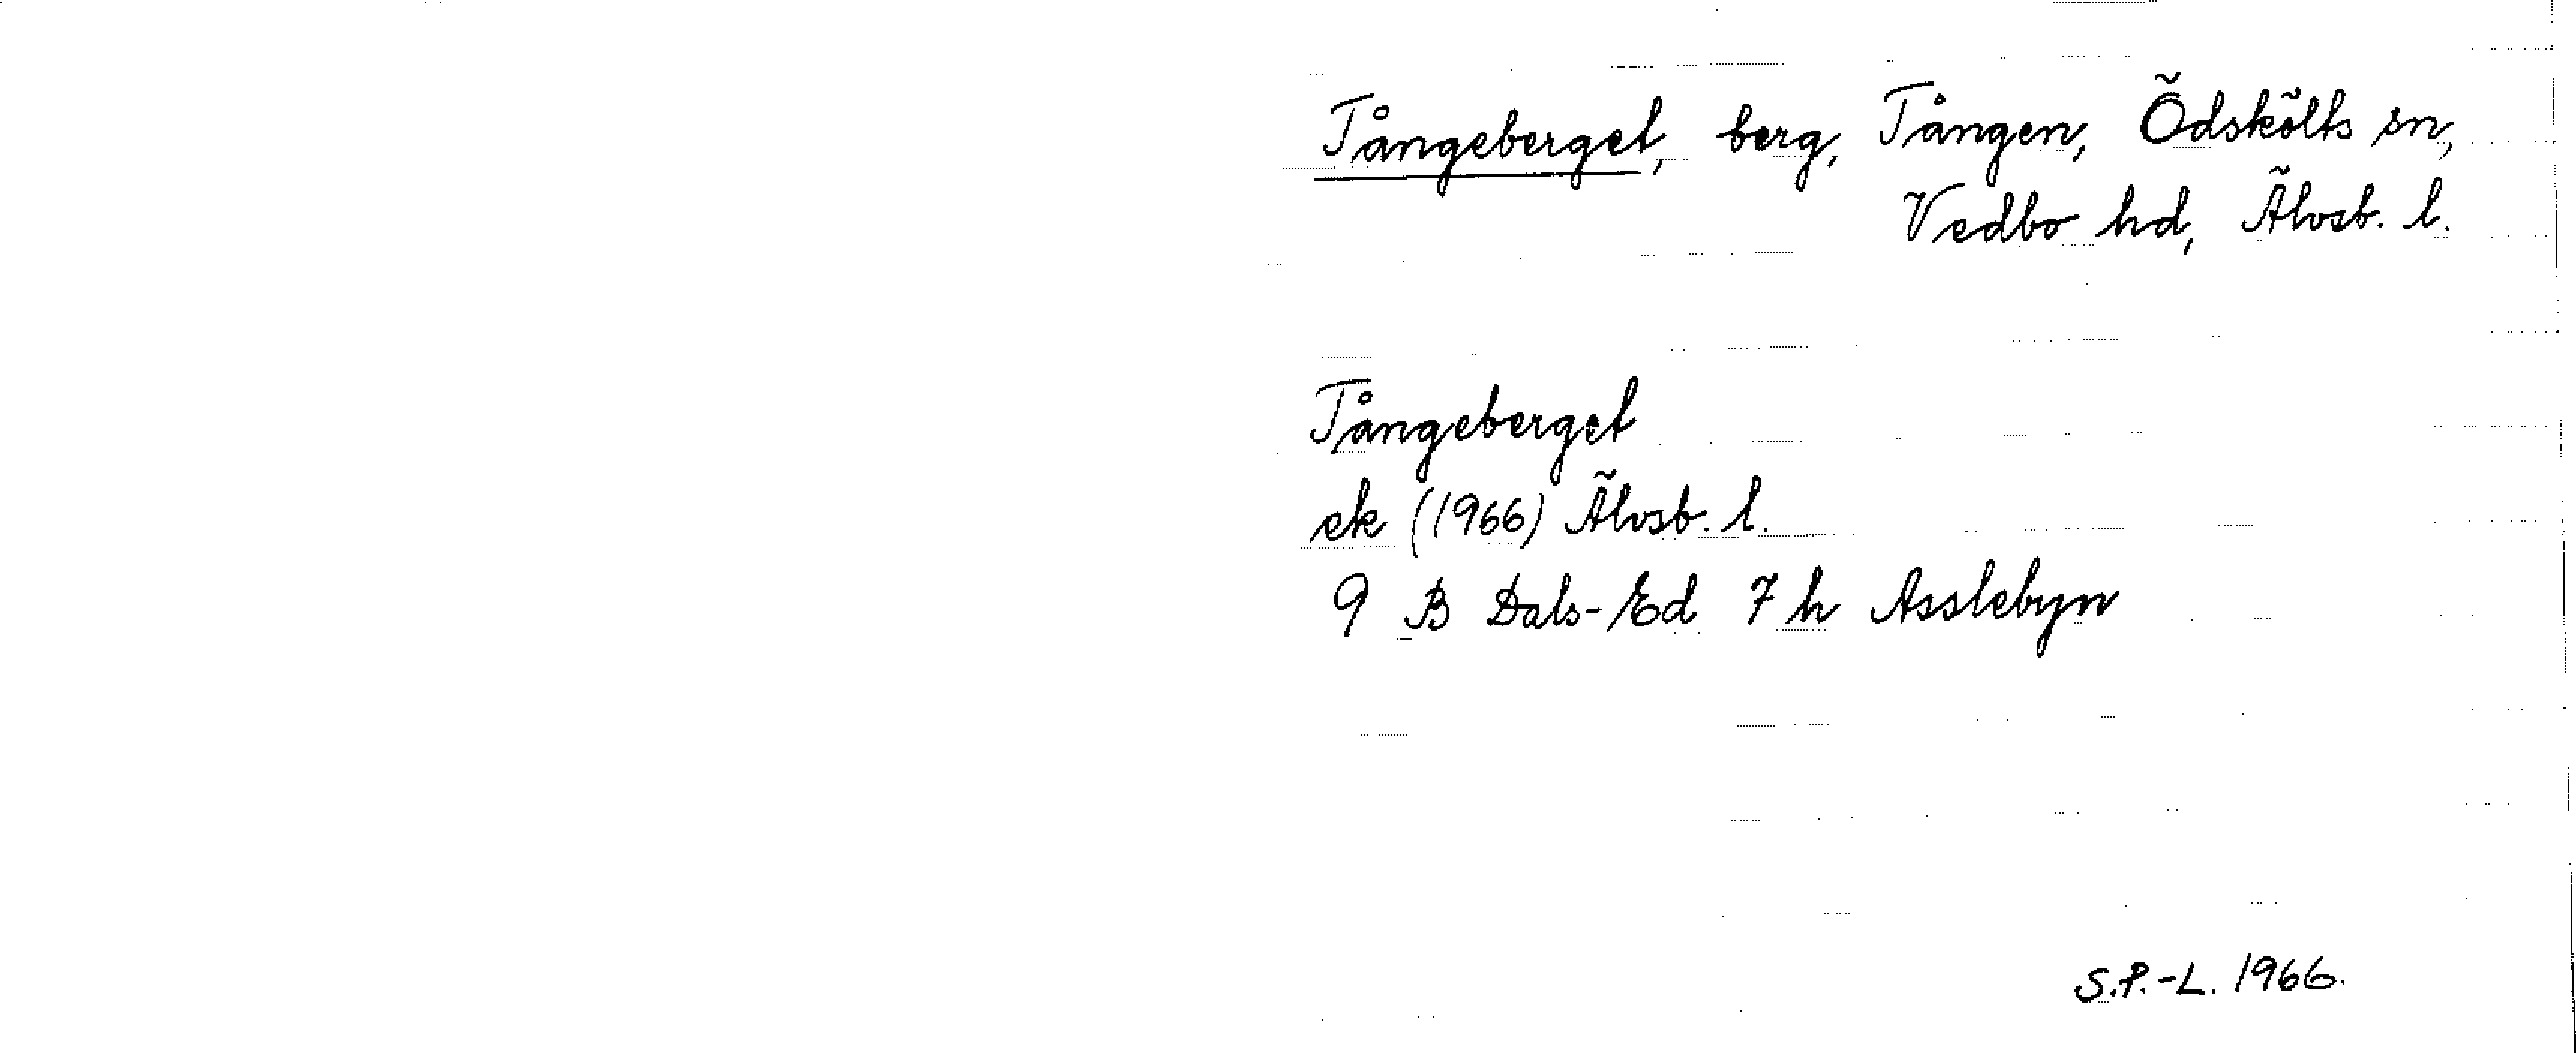 Tångeberget, berg, Tången, Ödskölts sn,
Vedbo hd, Älvsb. l.
Tångeberget
ek (1966) Älvsb. l.
9 B Dals-Ed 7 h Asslebyn
S.P.-L. 1966.